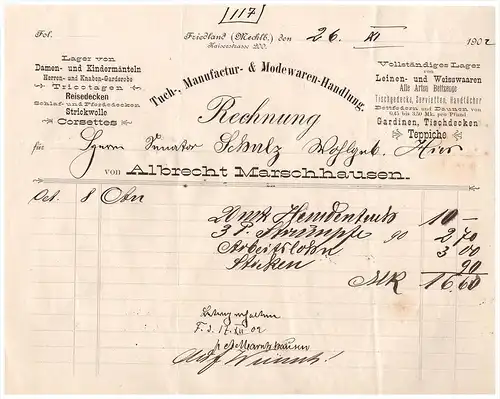 [117]
Fol.
Friedland (Mecklb.) den 26. XI 1902
Kaiserstrasse 200.
Lager von
Damen- und Kindermänteln
Herren- und Knaben-Garderobe
Tricotagen
Reisedecken
Schlaf- und Pferdedecken
Strickwolle
Corsettes
Tuch-, Manufactur- & Modewaren-Handlung.
Vollständiges Lager
von
Leinen- und Weisswaaren
Alle Arten Bettzeuge
Tischgedecke, Servietten, Handtücher
Bettfedern und Daunen von
0,45 bis 3,50 Mk. pro Pfund
Gardinen, Tischdecken
Teppiche
Rechnung
für Herrn Senator Schulz Wohlgeb. Hier
von Albrecht Marschhausen.
Oct. 8
20 mtr Hemdentuch 10 –
3 P. Strümpfe 90 2 70
Arbeitslohn 3 00
Sticken 90
MK 16.60
Betrag erhalten
F. d. 17. XII 02